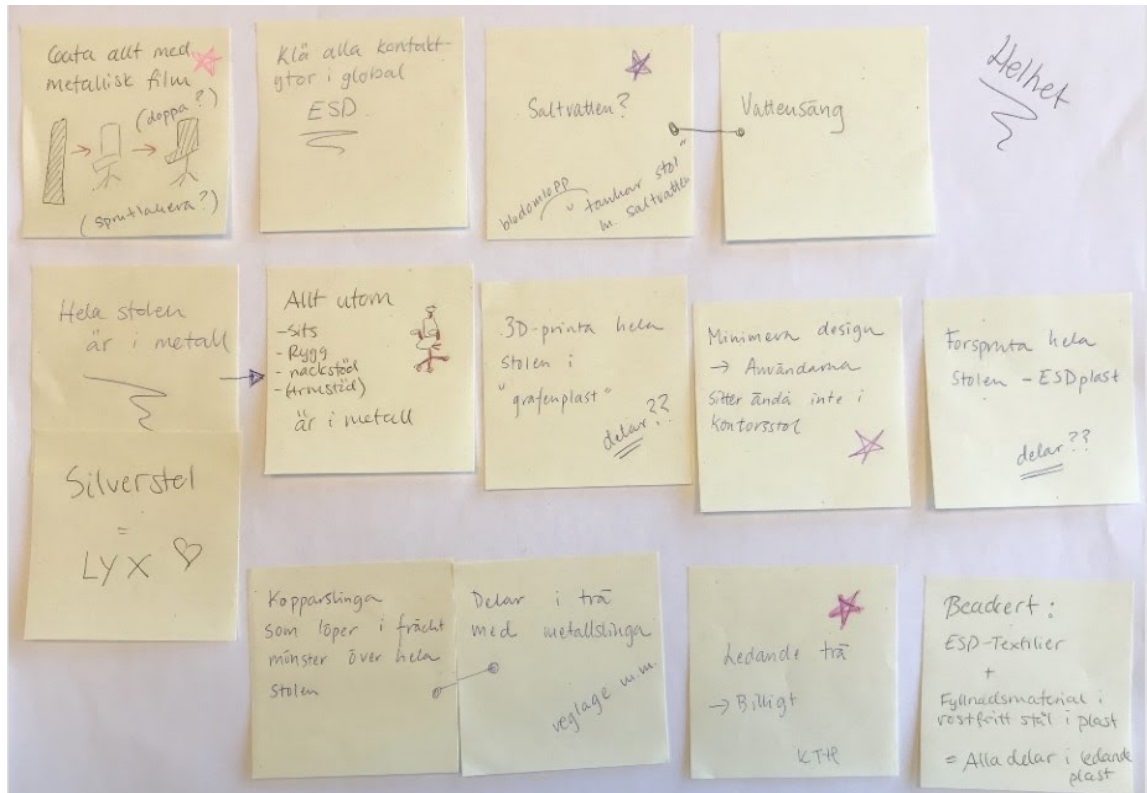 Coata allt med
metallisk film
(doppa?)
(sprutlakera?)
Klä alla kontakt-
ytor i global
ESD
Saltvatten?
blodomlopp
"tankar stol"
m. saltvatten
Vattensäng
Helhet
Hela stolen
är i metall
Silverstel
=
LYX ♡
Allt utom
-Sits
-Rygg
-nackstöd
-(Armstöd)
är i metall
3D-printa hela
stolen i
"grafenplast"
delar??
Minimera design
→ Användarna
sitter ändå inte i
kontorsstol
Forspruta hela
stolen - ESDplast
delar??
Kopparslinga
som löper i fräckt
mönster över hela
stolen
Delar i trä
med metallslinga
veglage m.m.
Ledande trä
→ Billigt
KTH
Beackert:
ESD-Textilier
+
Fyllnadsmaterial i
rostfritt stål i plast
= Alla delar i ledande
plast